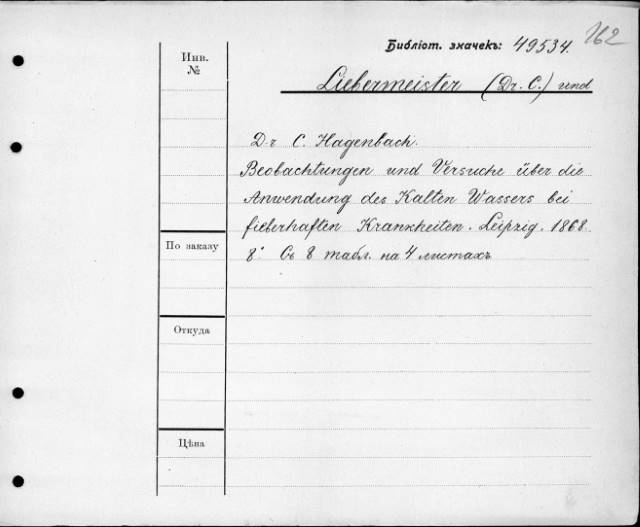 162
Библіот. значекъ: 49534.
Инв.
№
Liebermeister (Dr. C.) und
Dr C. Hagenbach.
Beobachtungen und Versuche über die
Anwendung des Kalten Wassers bei
fieberhaften Krankheiten. Leipzig. 1868.
8° Съ 8 табл. на 4 листахъ
По заказу
Откуда
Цѣна